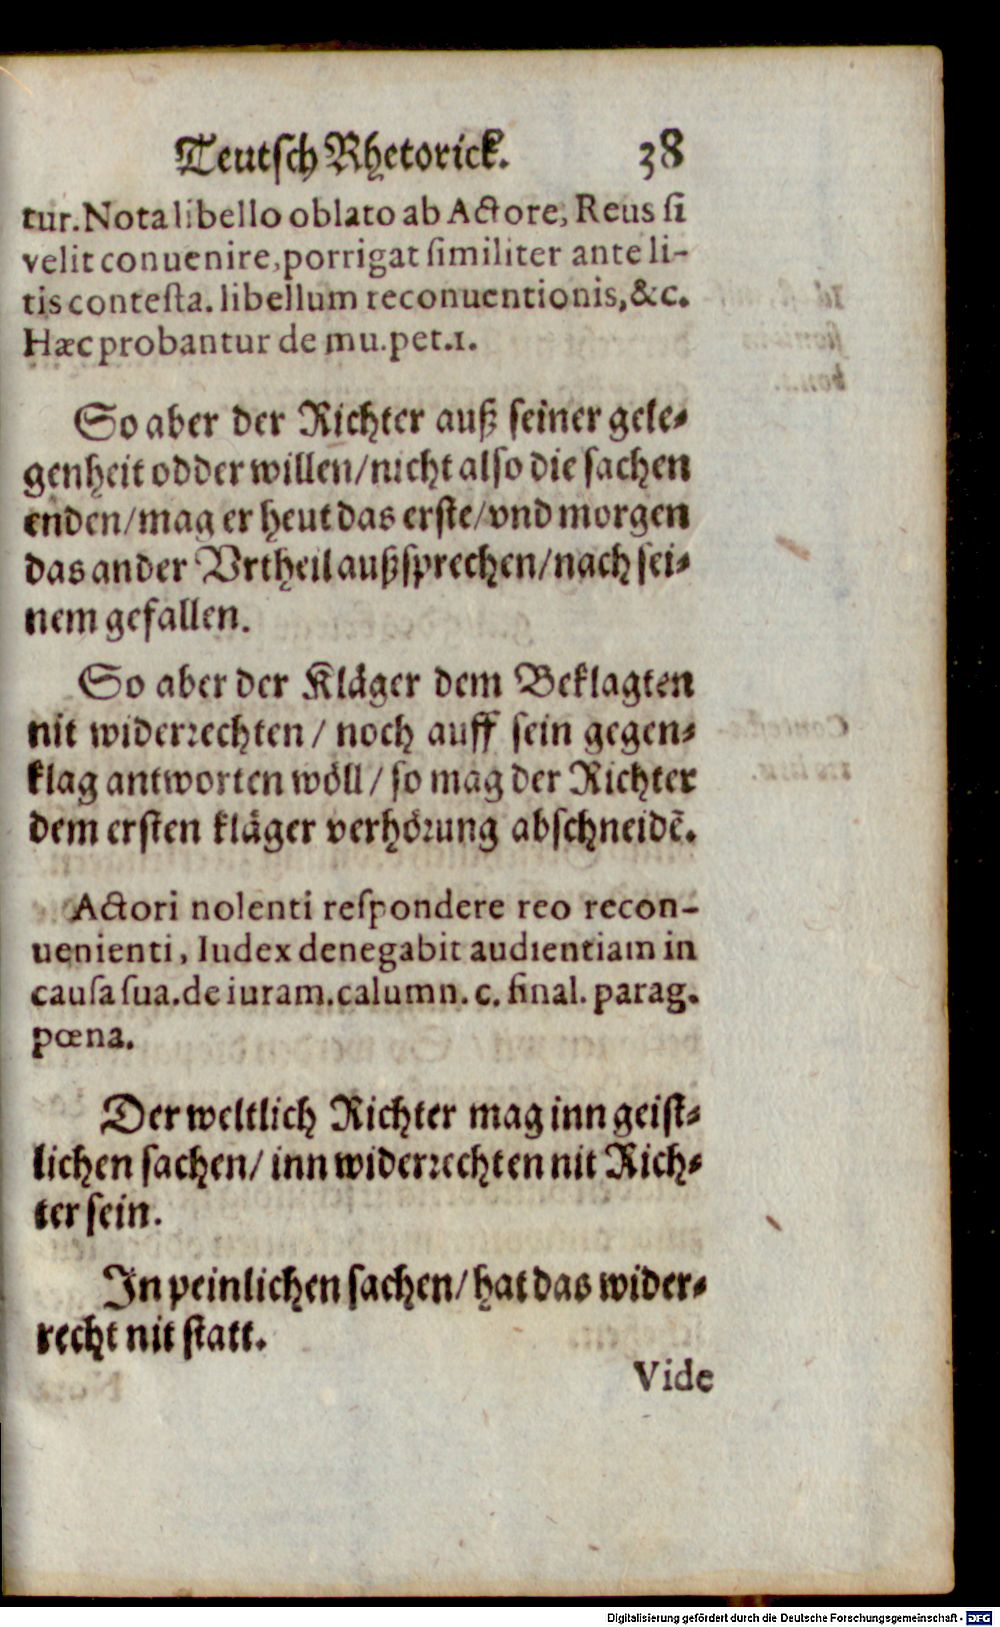 Teutsch Rhetorick. 38
tur. Nota libello oblato ab Actore, Reus ſi
velit conuenire, porrigat ſimiliter ante li-
tis conteſta. libellum reconuentionis, &c.
Hæc probantur de mu. pet. 1.
So aber der Richter auß ſeiner gele-
genheit odder willen/ nicht alſo die ſachen
enden/ mag er heut das erſte/ vnd morgen
das ander Vrtheil außſprechen/ nach ſei-
nem gefallen.
So aber der Kläger dem Beklagten
nit widerꝛechten / noch auff ſein gegen-
klag antworten wöll / ſo mag der Richter
dem erſten kläger verhöꝛung abſchneidẽ.
Actori nolenti reſpondere reo recon-
uenienti, Iudex denegabit audientiam in
cauſa ſua. de iuram. calumn. c. final. parag.
pœna.
Der weltlich Richter mag inn geiſt-
lichen ſachen/ inn widerꝛechten nit Rich-
ter ſein.
In peinlichen ſachen/ hat das wider-
recht nit ſtatt.
Vide
Digitalisierung gefördert durch die Deutsche Forschungsgemeinschaft - DFG